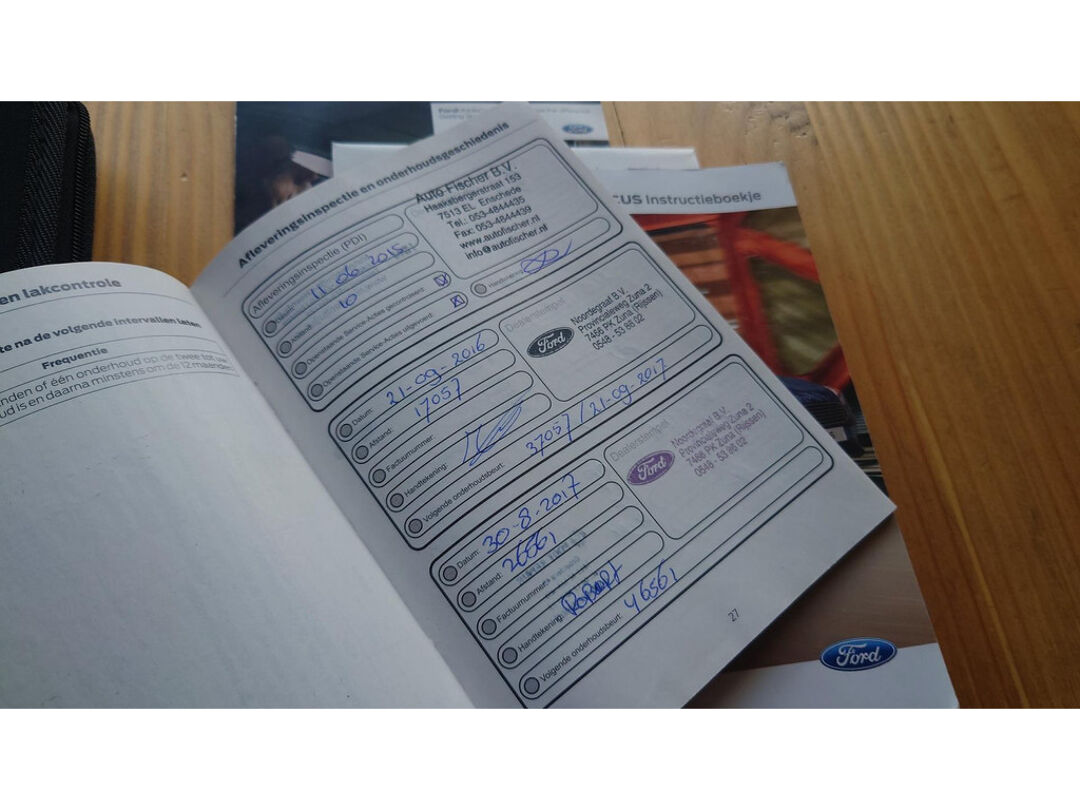 en lakcontrole
te na de volgende intervallen laten
Frequentie
nden of één onderhoud op de twee tot vier
ud is en daarna minstens om de 12 maanden.
Afleveringsinspectie en onderhoudsgeschiedenis
Afleveringsinspectie (PDI)
Datum: 11-06-2015
Afstand: 10
Openstaande Service-Acties gecontroleerd:
Openstaande Service-Acties uitgevoerd:
Auto Fischer B.V.
Haaksbergerstraat 153
7513 EL Enschede
Tel.: 053-4844435
Fax: 053-4844439
www.autofischer.nl
info@autofischer.nl
Handtekening:
Datum: 21-09-2016
Afstand: 17057
Factuurnummer:
Handtekening:
Volgende onderhoudsbeurt: 37057 / 21-09-2017
Dealerstempel
Ford
Noordegraaf B.V.
Provincialeweg Zuna 2
7466 PK Zuna (Rijssen)
0548 - 53 86 02
Datum: 30-8-2017
Afstand: 26561
Factuurnummer:
Handtekening: ROBERT
Volgende onderhoudsbeurt: 46561
Dealerstempel
Ford
Noordegraaf B.V.
Provincialeweg Zuna 2
7466 PK Zuna (Rijssen)
0548 - 53 86 02
27
CUS Instructieboekje
Ford